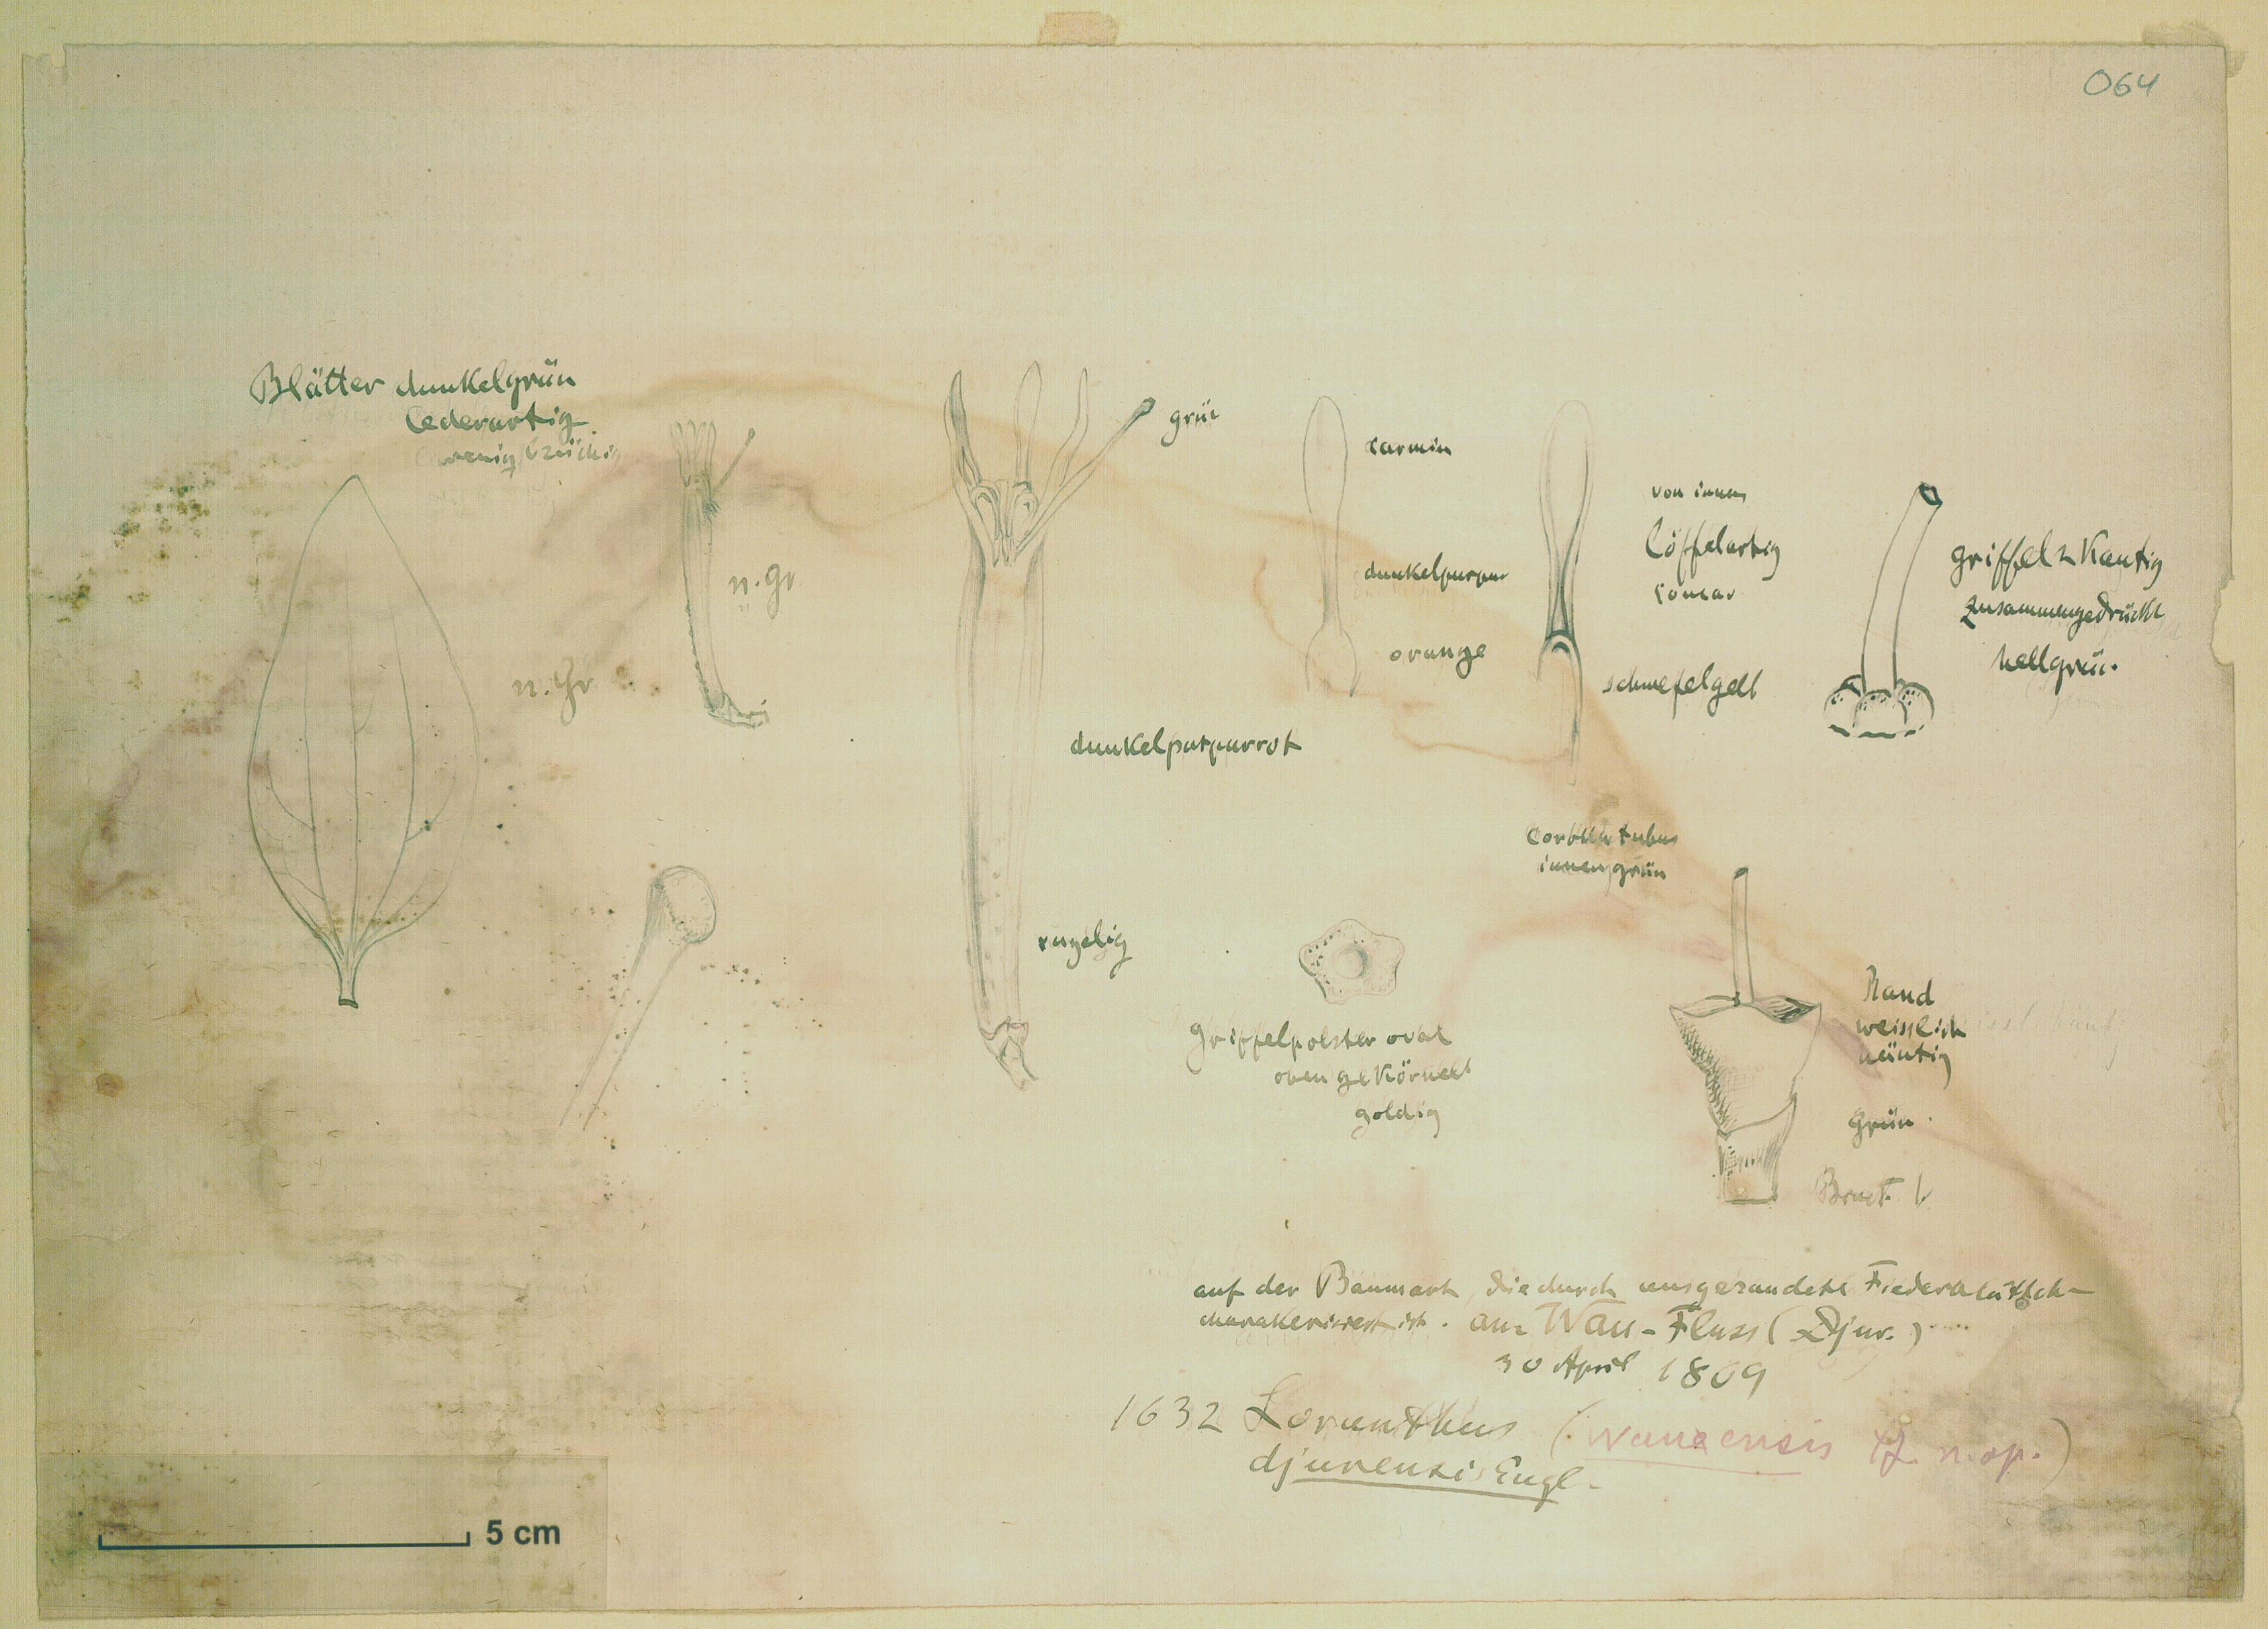 064
Blätter dunkelgrün
lederartig
wenig
n. Gr
n. gr
grün
dunkelpurpurrot
karmin
dunkelpurpur
orange
von innen
löffelartig
schwefelgelb
griffel 2 kantig
zusammengedrückt
hellgrün.
Corollentubus
innen grün
Griffelpolster oval
oben gekörnelt
goldig
Rand
weisslich
häutig
grün
Bract.
auf der Baumart, die durch ausgerandete
charakterisiert ist. am Wau-Fluss (Djur.)
30 April 1869
1632 Loranthus (wauensis n. sp.)
djurensis Engl.
5 cm